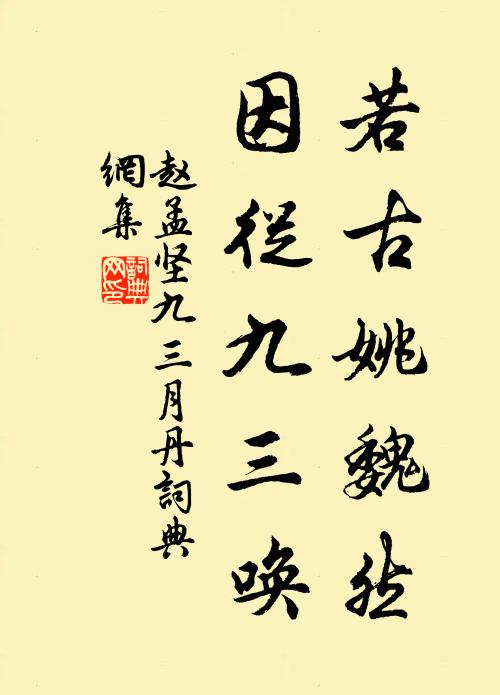 若古姚魏然
因從九三喚
赵孟坚九三月丹詞典
網集
詞典網印